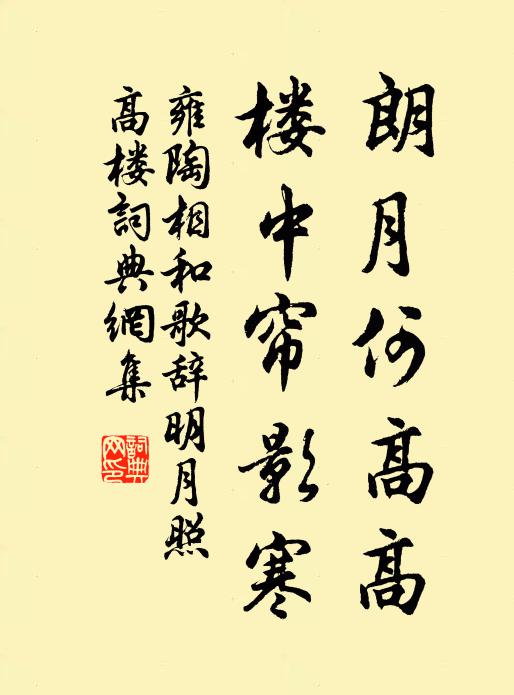 朗月何高高
楼中帘影寒
雍陶相和歌辞明月照
高楼詞典網集
詞典
网印